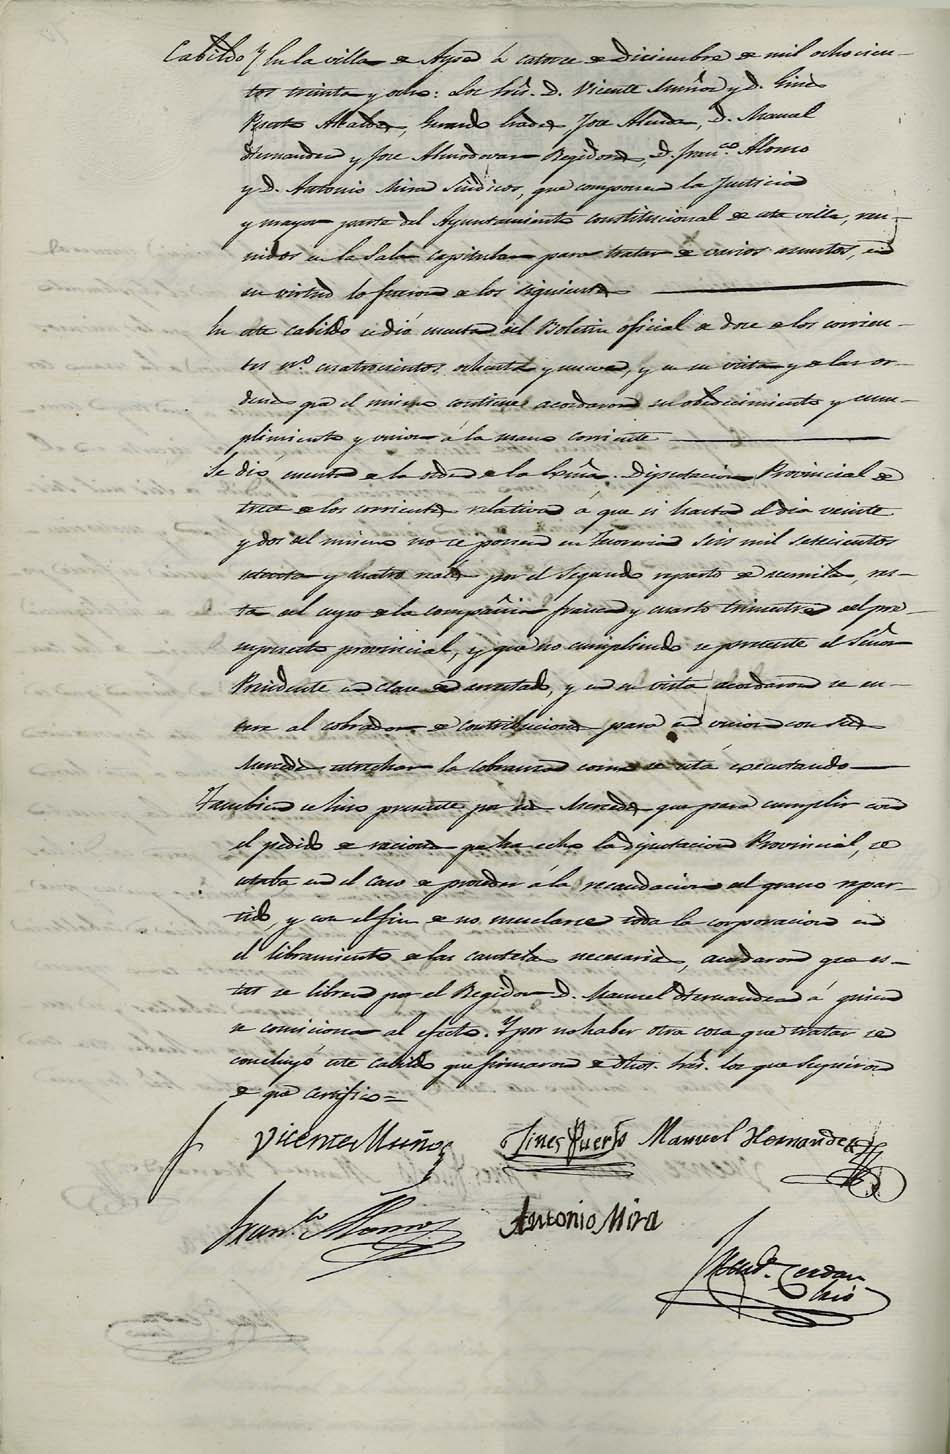 Cabildo En la villa de Aspe á catorce de Diciembre de mil ochocien-
tos treinta y ocho: Los Sres. D. Vicente Muñoz y D. Gines
Puerto Alcaldes, José Almela, D. Manuel
Hernandez y José Almodovar Regidores, D. Franco. Alonso
y D. Antonio Mira Sindicos, que componen la Justicia
y mayor parte del Ayuntamiento constitucional de esta villa, reu-
nidos en la Sala capitular para tratar de varios asuntos, en
su virtud lo fueron de los siguientes
En este cabildo se dió cuenta del Boletin oficial de doce de los corrien-
tes no. cuatrocientos ochenta y nueve, y en su vista y de las or-
denes que el mismo contiene acordaron su obedecimiento y cum-
plimiento y union á la mano corriente
Se dió cuenta de la orden de la Diputacion Provincial de
trece de los corrientes relativa á que si hasta el dia veinte
y dos del mismo no se ponen en Tesoreria Seis mil setecientos
y cuatro reales por el segundo reparto de, res-
ta del cupo de la compañia franca y cuarto trimestre del pre-
supuesto provincial, y que no cumpliendo se presente el Señor
Presidente en clase de arrestado, y en su vista acordaron se en-
tere al cobrador de contribuciones para en union con sus
Mercedes estrechar la cobranza como se está ejecutando
Tambien se hizo presente por sus Mercedes que para cumplir con
el pedido de raciones que ha echo la Diputacion Provincial, se
estaba en el caso de proceder á la recaudacion del grano repar-
tido, y con el fin de no mesclarse toda la corporacion en
el libramiento de las cautelas necesarias, acordaron que es-
tas se libren por el Regidor D. Manuel Hernandez á quien
se comisiona al efecto. Y por no haber otra cosa que tratar se
concluyó este cabildo que firmaron de dhos. Sres. los que supieron
de que certifico=
Vicente Muñoz Gines Puerto Manuel Hernandez
Franco. Alonso Antonio Mira
Cerdan
Srio